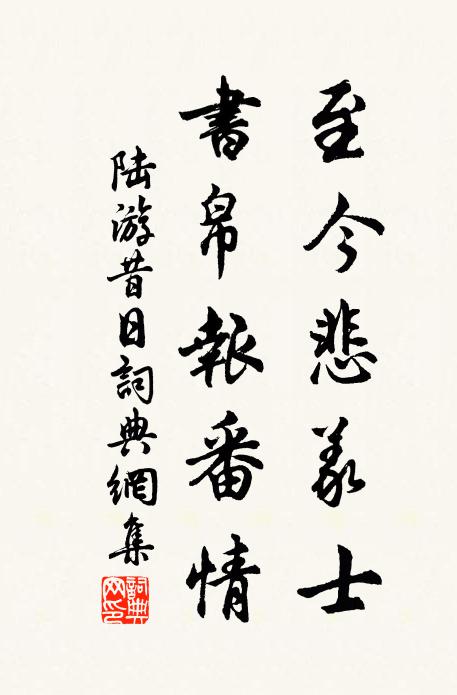 至今悲義士
書帛報番情
陸游昔日詞典網集
詞典網印